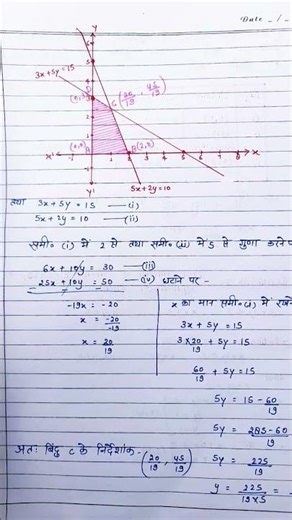 Date _/_
Y
3x+5y=15
D
(0,3)
C (20/19, 45/19)
(0,0)
A
B(2,0)
X'
X
1 2 3 4 5 6 7 8
Y'
5x+2y=10
तथा 3x + 5y = 15 —(i)
5x + 2y = 10 —(ii)
समी० (i) में 2 से तथा समी० (ii) में 5 से गुणा करने प
6x + 10y = 30 —(iii)
25x + 10y = 50 —(iv) घटाने पर -
-19x = -20
x = -20/-19
x = 20/19
x का मान समी० (i) में रखने
3x + 5y = 15
3 × 20/19 + 5y = 15
60/19 + 5y = 15
5y = 15 - 60/19
5y = 285-60/19
5y = 225/19
y = 225/19×5 =
अतः बिंदु C के निर्देशांक - (20/19, 45/19)